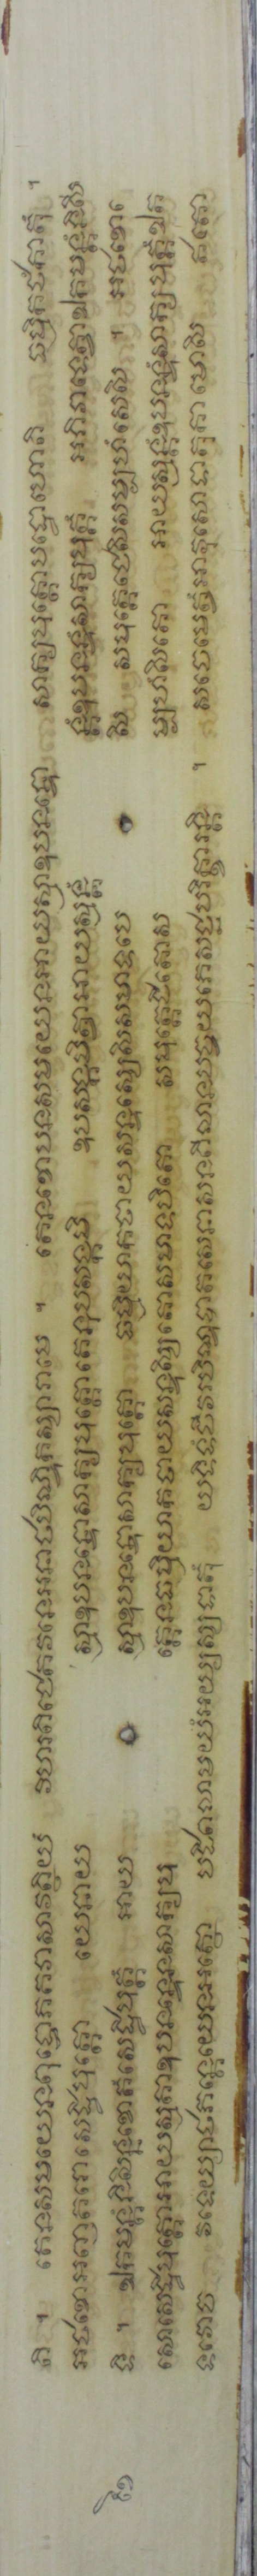 តិ ។ តេនសមយេនពុទ្ធោភគវាសាវត្ថិយំ វិហរតិជេតវនេអនាថបិណ្ឌិកស្សារាមេ ។ តេនខោបនសមយេនអាយស្មាឧបនន្ទោ សាក្យបុត្តោបដ្ឋោហោតិ ធម្មិកថំកាតុំ ។
អថខោអញតរោសេដ្ឋិបុត្តោ យេនាយ ស្មាឧបនន្ទោសាក្យបុត្តោតេនុបសង្កមិ ឧបសង្កមិត្វាអាយស្មន្តំ ន្តំឧបនន្ទំសាក្យបុត្តំ អភិវាទេត្វាឯកមន្តំនិសី
ទិ ។ ឯកមន្តំនិសិន្នំខោតំសេដ្ឋិបុត្តំ អាយ ស្មាឧបនន្ទោសាក្យបុត្តោ ធម្មិយាកថាយសន្ទស្សេសិសមាទបេ សិ សមុត្តេជេសិសម្បហំសេសិ ។ អថខោ
សោសេដ្ឋិបុត្តោអាយស្មតាឧបនន្ទេនសាក្យបុ ត្តេនធម្មិយាកថាយសន្ទស្សិតោសមាទបិតោ សមុត្តេជិតោស ម្បហំសិតោ អាយស្មន្តំឧបនន្ទំសាក្យបុត្តំឯត
ទវោច វទេយ្យាថភន្តេយេនអត្ថោ បដិពលាមយំអយ្យស្សទាតុំ យទិទំចីវរបិណ្ឌបាតសេនាសនគិលានបច្ចយភេសជ្ជបរិក្ខារន្តិ ។ សចេមេត្វំអាវុសោទាតុកាមោសិ ឥតោ
៦១